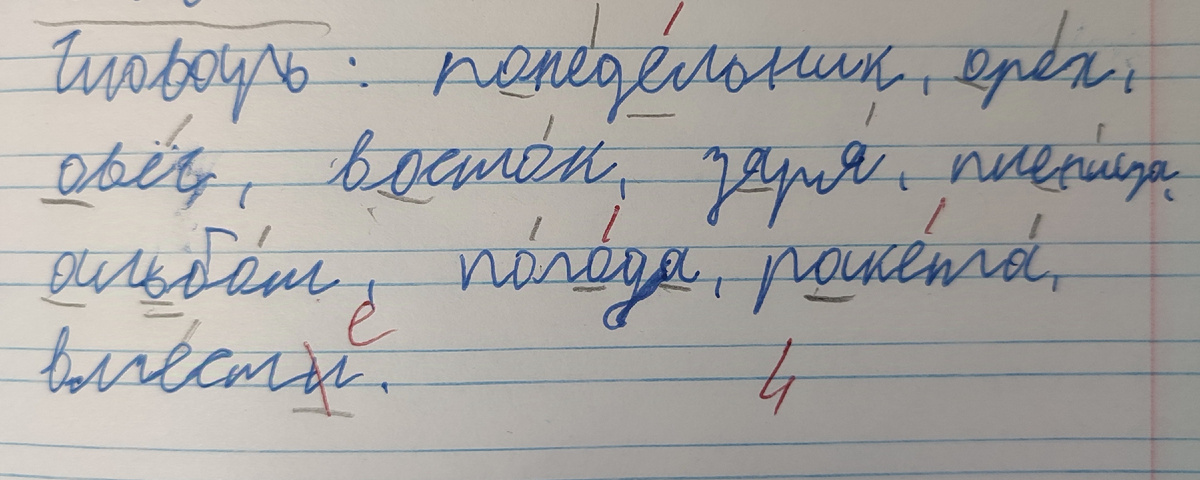 Словарь: понедельник, орех,
овёс, восток, заря, пшеница,
альбом, погода, ракета,
е
вмести. 4